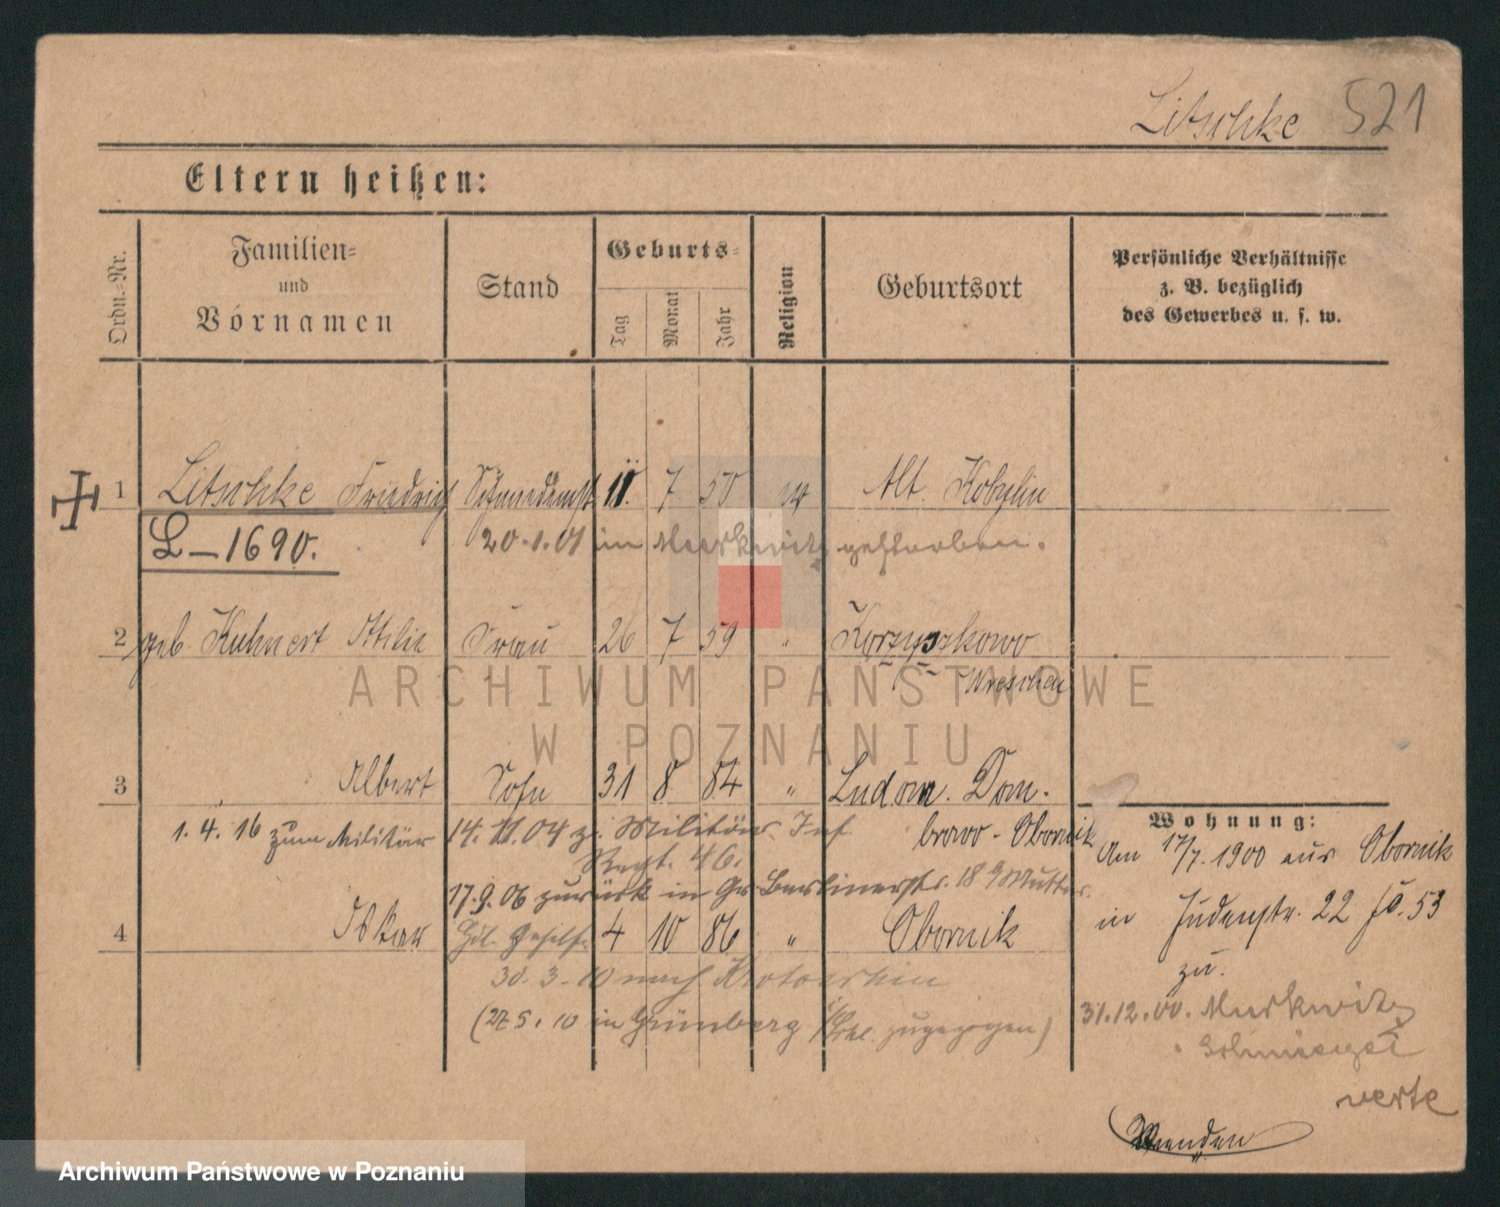 Litschke 521
Eltern heißen:
Ordn.-Nr.
Familien-
und
Vornamen
Stand
Geburts-
Tag
Monat
Jahr
Religion
Geburtsort
Persönliche Verhältnisse
z. B. bezüglich
des Gewerbes u. s. w.
1 Litschke Friedrich 11. 7 50 Alt Kobylin
L-1690. 20.1.01 in Murkwitz gestorben.
2 geb. Kuhnert Ottilie Frau 26 7 59 " Korzyszkowo
Wreschen
3 Albert Sohn 31 8 84 " Ludom. Dom.
1.4.16 zum Militär 14. 11.04 z. Militär Inf browo - Obornik
Regt. 46.
17.9.06 zurück in Gr. Berlinerstr. 18 Mutter.
4 Oskar Hdl. Gehilfe 4 10 86 " Obornik
30.3.10 nach Krotoschin
(27.5.10 in Grünberg zugezogen)
Wohnung:
Am 17/7.1900 aus Obornik
in Judenstr. 22 53
zu.
31.12.00. Murkwitz
Schmiegel
verte
Wenden
ARCHIWUM PAŃSTWOWE
W POZNANIU
Archiwum Państwowe w Poznaniu